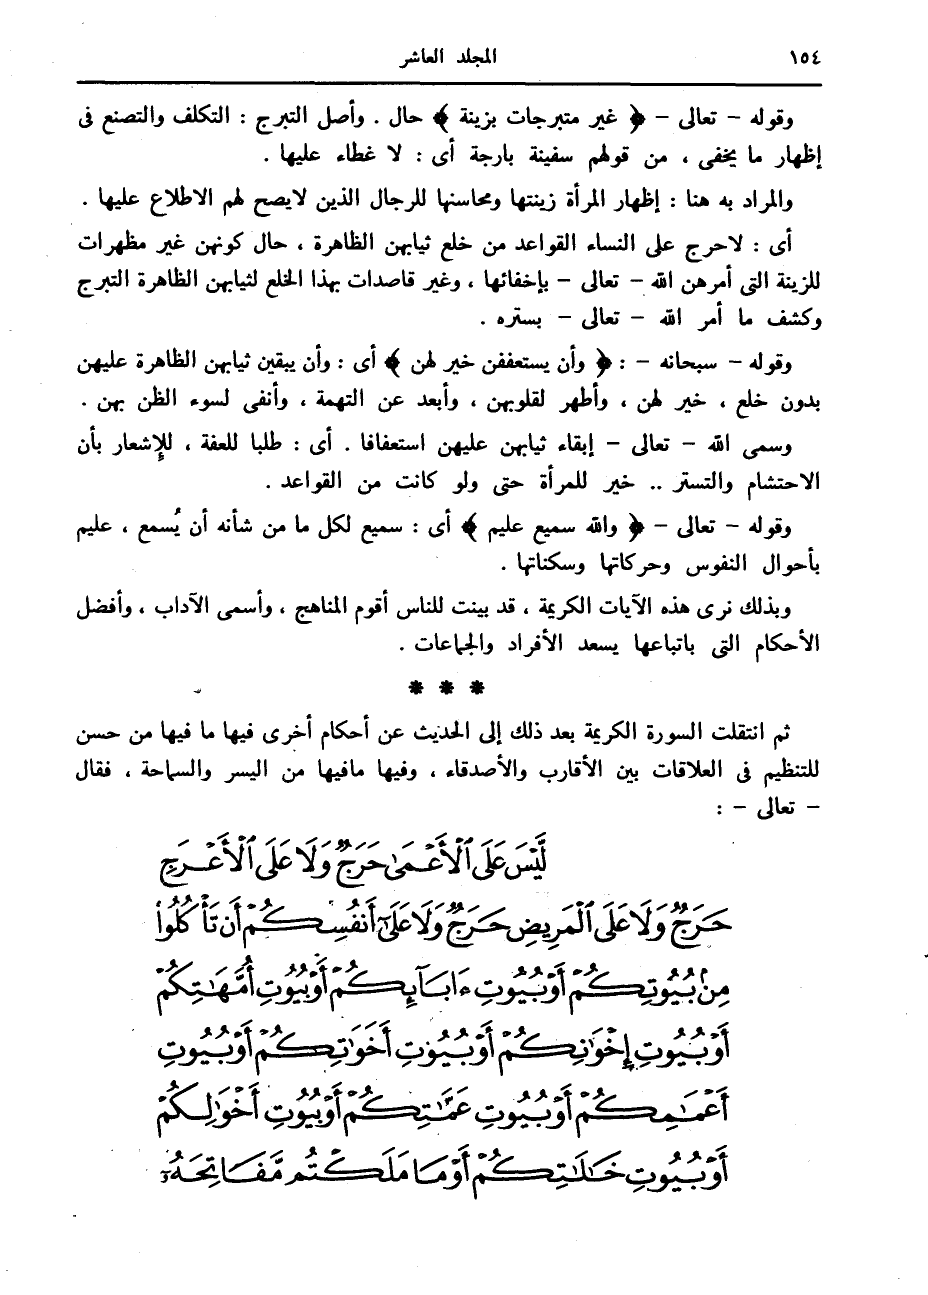 ١٥٤ المجلد العاشر
وقوله – تعالى – ﴿ غير متبرجات بزينة ﴾ حال . وأصل التبرج : التكلف والتصنع فى
إظهار ما يخفى ، من قولهم سفينة بارجة أى : لا غطاء عليها .
والمراد به هنا : إظهار المرأة زينتها ومحاسنها للرجال الذين لايصح لهم الاطلاع عليها .
أى : لاحرج على النساء القواعد من خلع ثيابهن الظاهرة ، حال كونهن غير مظهرات
للزينة التى أمرهن الله – تعالى – بإخفائها ، وغير قاصدات بهذا الخلع لثيابهن الظاهرة التبرج
وكشف ما أمر الله – تعالى – بستره .
وقوله – سبحانه – : ﴿ وأن يستعففن خير لهن ﴾ أى : وأن يبقين ثيابهن الظاهرة عليهن
بدون خلع ، خير لهن ، وأطهر لقلوبهن ، وأبعد عن التهمة ، وأنفى لسوء الظن بهن .
وسمى الله – تعالى – إبقاء ثيابهن عليهن استعفافا . أى : طلبا للعفة ، للإشعار بأن
الاحتشام والتستر .. خير للمرأة حتى ولو كانت من القواعد .
وقوله – تعالى – ﴿ والله سميع عليم ﴾ أى : سميع لكل ما من شأنه أن يُسمع ، عليم
بأحوال النفوس وحركاتها وسكناتها .
وبذلك نرى هذه الآيات الكريمة ، قد بينت للناس أقوم المناهج ، وأسمى الآداب ، وأفضل
الأحكام التى باتباعها يسعد الأفراد والجماعات .
* * *
ثم انتقلت السورة الكريمة بعد ذلك إلى الحديث عن أحكام أخرى فيها ما فيها من حسن
للتنظيم فى العلاقات بين الأقارب والأصدقاء ، وفيها مافيها من اليسر والسماحة ، فقال
– تعالى – :
لَّيْسَ عَلَى ٱلْأَعْمَىٰ حَرَجٌ وَلَا عَلَى ٱلْأَعْرَجِ
حَرَجٌ وَلَا عَلَى ٱلْمَرِيضِ حَرَجٌ وَلَا عَلَىٰٓ أَنفُسِكُمْ أَن تَأْكُلُوا۟
مِنۢ بُيُوتِكُمْ أَوْ بُيُوتِ ءَابَآئِكُمْ أَوْ بُيُوتِ أُمَّهَٰتِكُمْ
أَوْ بُيُوتِ إِخْوَٰنِكُمْ أَوْ بُيُوتِ أَخَوَٰتِكُمْ أَوْ بُيُوتِ
أَعْمَٰمِكُمْ أَوْ بُيُوتِ عَمَّٰتِكُمْ أَوْ بُيُوتِ أَخْوَٰلِكُمْ
أَوْ بُيُوتِ خَٰلَٰتِكُمْ أَوْ مَا مَلَكْتُم مَّفَاتِحَهُۥٓ